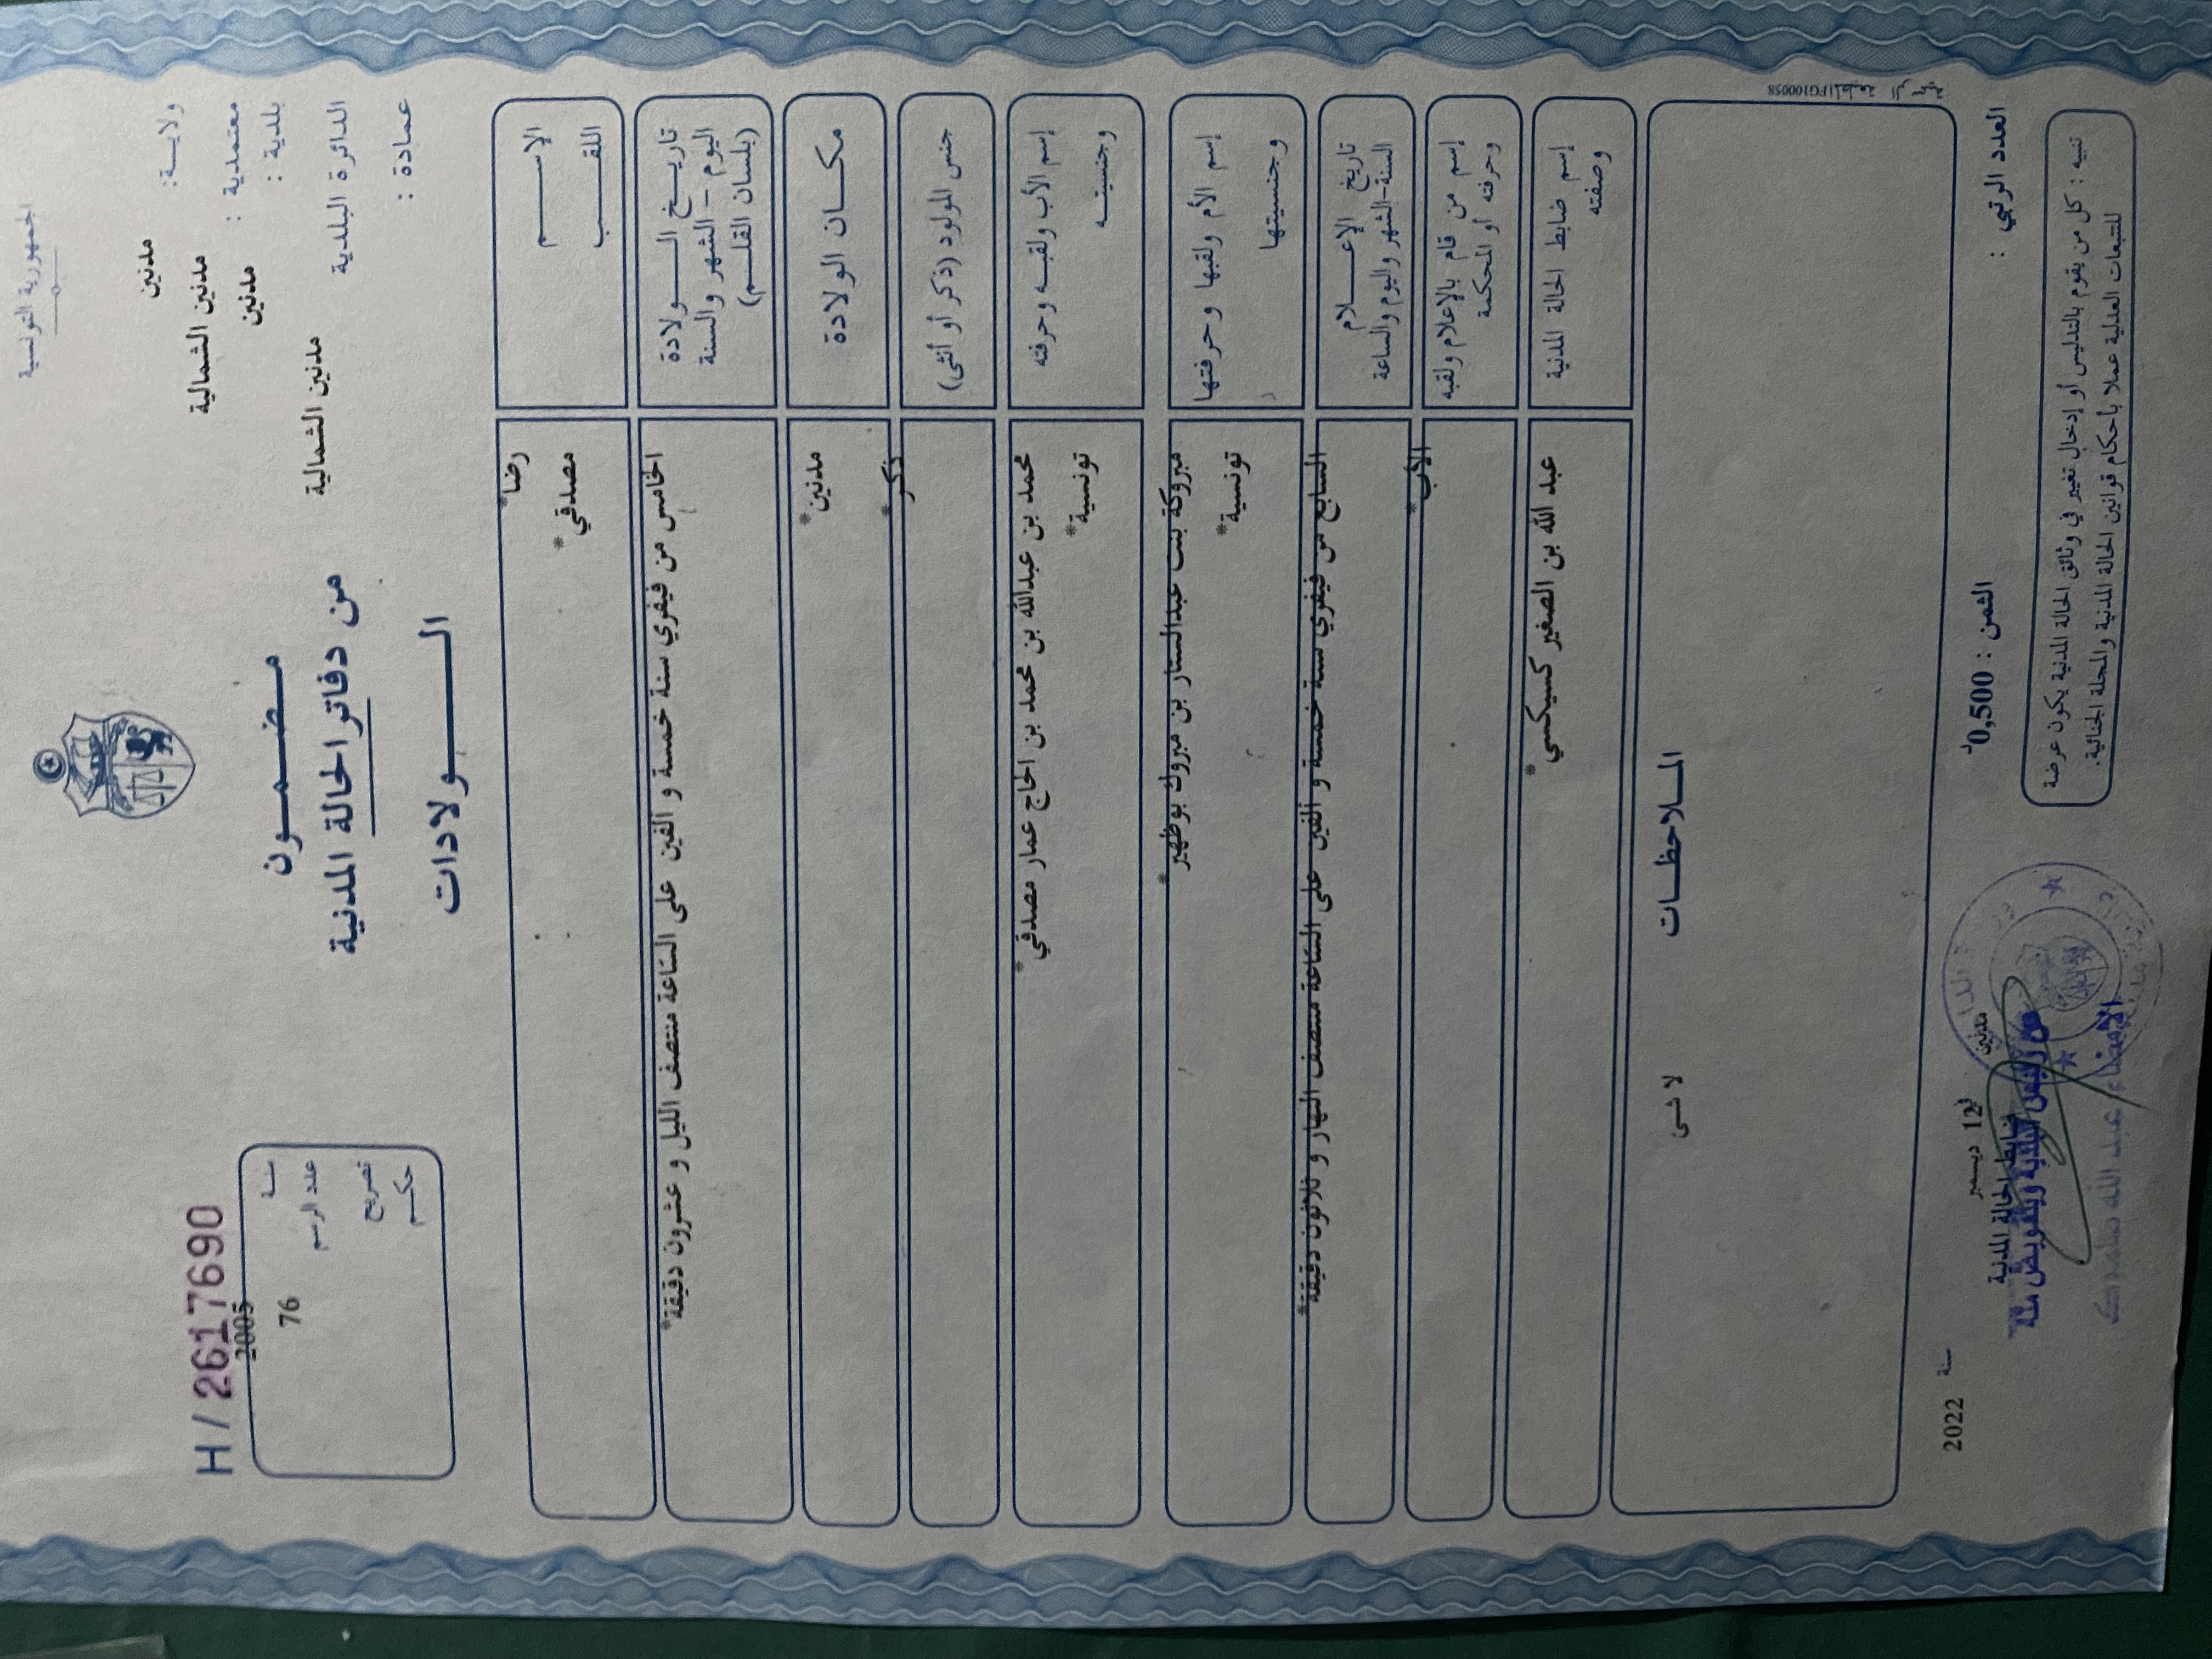 الجمهورية التونسية
ولايـــة: مدنين
معتمدية : مدنين الشمالية
بلدية : مدنين
الدائرة البلدية مدنين الشمالية
عمادة :
H / 2617690
سنة 2005
عدد الرسم 76
تصريح
حكم
مضمـــون
من دفاتر الحالة المدنية
الـــولادات
الإســـم رضا*
اللقـــب مصدقي*
تاريـــخ الـــولادة
اليوم – الشهر والسنة
(بلسان القلـــم)
الخامس من فيفري سنة خمسة و الفين على الساعة منتصف الليل و عشرون دقيقة*
مكـــان الولادة مدنين*
جنس المولود (ذكر أو أنثى) ذكر*
إسم الأب ولقبـه وحرفته محمد بن عبدالله بن محمد بن الحاج عمار مصدقي*
وجنسيتـــه تونسية*
إسم الأم ولقبها وحرفتها مبروكة بنت عبدالستار بن مبروك بوظهير*
وجنسيتها تونسية*
تاريخ الإعـــلام
السنة-الشهر واليوم والساعة
السابع من فيفري سنة خمسة و الفين على الساعة منتصف النهار و ثلاثون دقيقة*
إسم من قام بالإعلام ولقبه
وحرفته أو المحكمة
الأب*
إسم ضابط الحالة المدنية
وصفته
عبد الله بن الصغير كسيكسي*
المـــلاحظـــات
لا شئ
العدد الرتبي :
الثمن : 0,500د
مدنين في 12 ديسمبر سنة 2022
ضابط الحالة المدنية
عن رئيس البلدية وبتفويض منه
الإمضاء عبد الله
تنبيه : كل من يقوم بالتدليس أو إدخال تغيير في وثائق الحالة المدنية يكون عرضة
للتتبعات العدلية عملا بأحكام قوانين الحالة المدنية والمجلة الجنائية.